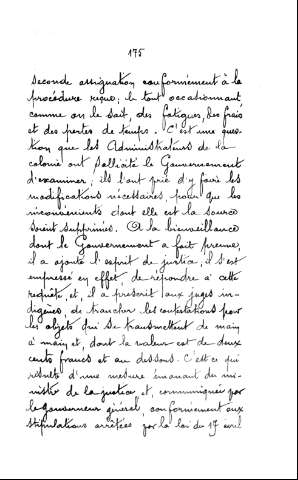 175
seconde assignation conformément à la
procédure reçue; le tout occasionnant
comme on le sait, des fatigues, des frais
et des pertes de temps. C'est une ques-
tion que les Administrateurs de la
colonie ont sollicité le Gouvernement
d'examiner; ils l'ont prié d'y faire les
modifications nécessaires, pour que les
inconvénients dont elle est la source
soient supprimés. A la bienveillance
dont le Gouvernement a fait preuve,
il a ajouté l'esprit de justice; il s'est
empressé en effet, de répondre à cette
requête, et, il a prescrit aux juges in-
digènes, de trancher les contestations pour
les objets qui se transmettent de main
à main et, dont la valeur est de deux
cents francs et au dessous. C'est ce qui
résulte d'une mesure émanant du mi-
nistre de la justice et, communiquée par
le gouverneur général, conformément aux
stipulations arrêtées par la loi du 17 avril